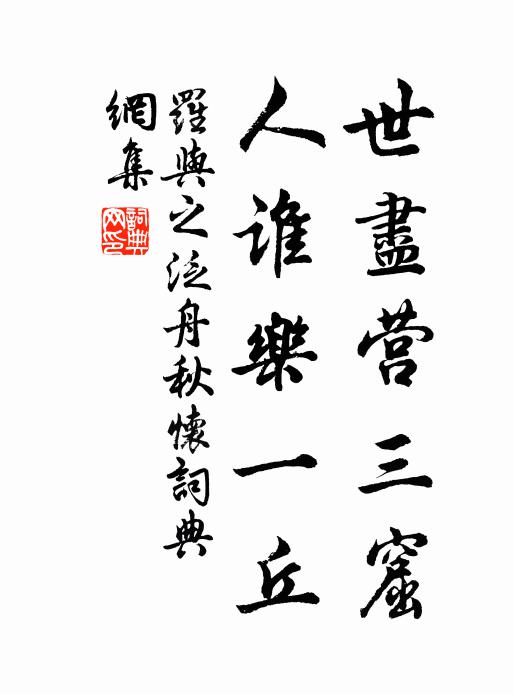 世盡营三窟
人誰樂一丘
羅與之泛舟秋懷詞典
網集
詞典
网印